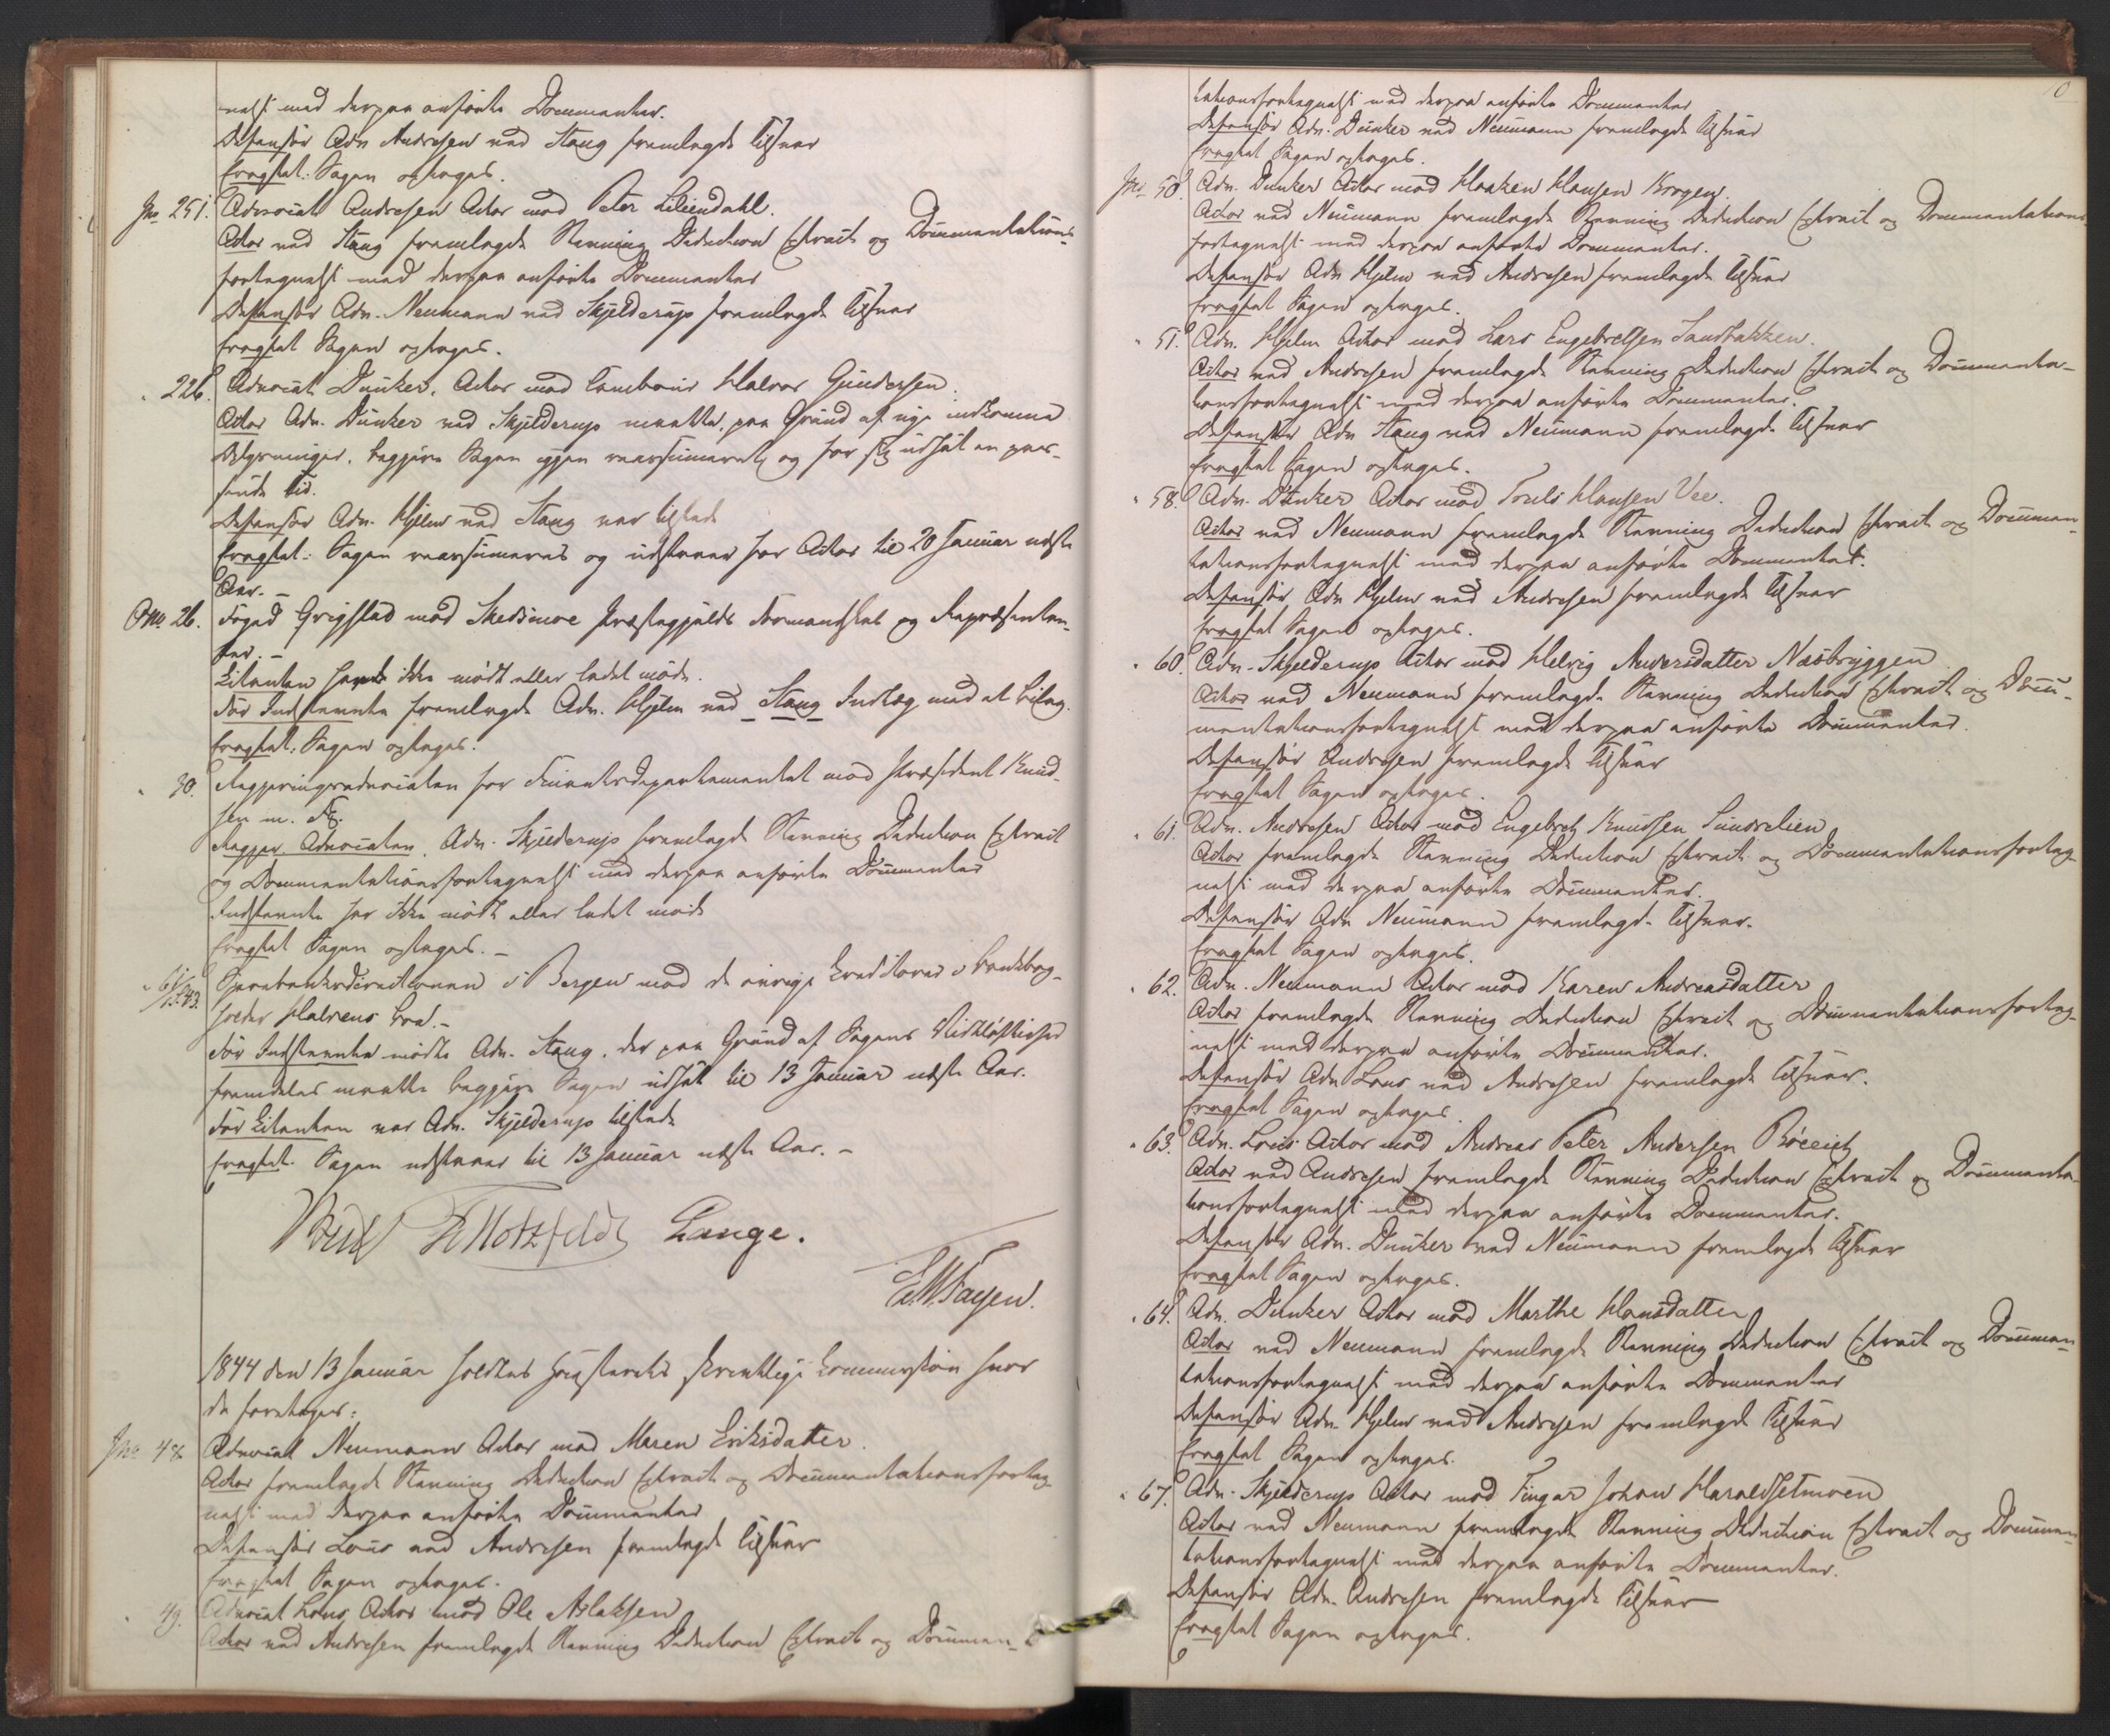 nelse med derpaa anførte Documenter.
Defensor Adv Andresen ved Stang fremlagde Tilsvar
Eragtet: Sagen optages.
Jno 251. Advocat Andresen Actor mod Peter Liliendahl.
Actor ved Stang fremlagde Stevning Deduction Extract og Documentations-
fortegnelse med derpaa anførte Documenter
Defensor Adv. Neumann ved Skjelderup fremlagde Tilsvar
Eragtet Sagen optages.
" 226. Advocat Dunker, Actor mod Tambour Halvor Gundersen.
Actor Adv. Dunker ved Skjelderup maatte, paa Grund af nye indkomne
Oplysninger, begjære Sagen igjen reassumeret og for sig udsat en pas-
sende Tid.
Defensor Adv. Hjelm ved Stang var tilstede
Eragtet: Sagen reassumeres og udstaaer for Actor til 20 Januar næste
Aar. -
Ono. 26. Foged Grigstad mod Skedsmoe Præstegjælds Formandskab og Repræsentan-
ter. -
Citanten havde ikke mødt eller ladet møde.
For Indstevnte fremlagde Adv. Hjelm ved Stang Indlæg med et Bilag.
Eragtet: Sagen optages.
" 30. Regjeringsadvocaten for Finantsdepartementet mod Præsident Knud-
sen m. Fl.
Regjer. Advocaten, Adv. Skjelderup fremlagde Stevning Deduction Extract
og Documentationsfortegnelse med derpaa anførte Documenter
Indstevnte har ikke mødt eller ladet møde
Eragtet Sagen optages. -
" 61/1843. Sparebankdirectionen i Bergen mod de øvrige Creditorer i
Halvens Bod. -
For Indstevnte mødte Adv. Stang, der paa Grund af Sagens Vidtløftighed
fremdeles maatte begjære Sagen udsat til 13 Januar næste Aar.
For Citanten var Adv. Skjelderup tilstede
Eragtet. Sagen udstaaer til 13 Januar næste Aar. -
Motzfeldt Lange.
Fayen.
1844 den 13 Januar holdtes Høiesterets skrivtlige Commission hvor
da foretoges:
Jno 48 Advocat Neumann Actor mod Maren Eriksdatter.
Actor fremlagde Stevning Deduction Extract og Documentationsforteg-
nelse med derpaa anførte Documenter
Defensor Lous ved Andresen fremlagde Tilsvar
Eragtet Sagen optages.
" 49. Advocat Lous, Actor mod Ole Aslaksen
Actor ved Andresen fremlagde Stevning Deduction Extract og Documen-
tationsfortegnelse med derpaa anførte Documenter
Defensor Adv. Dunker ved Neumann fremlagde Tilsvar
Eragtet Sagen optages.
Jno 50. Adv. Dunker Actor mod Haaken Hansen Krogen.
Actor ved Neumann fremlagde Stevning Deduction Extract og Documentations-
fortegnelse med derpaa anførte Documenter.
Defensor Adv Hjelm ved Andresen fremlagde Tilsvar
Eragtet Sagen optages.
" 51. Adv. Hjelm Actor mod Lars Engebretsen Sandbakken.
Actor ved Andresen fremlagde Stevning Deduction Extract og Documenta-
tionsfortegnelse med derpaa anførte Documenter.
Defensor Adv Stang ved Neumann fremlagde Tilsvar
Eragtet Sagen optages.
" 58. Adv. Dunker Actor mod Truls Hansen Vee.
Actor ved Neumann fremlagde Stevning Deduction Extract og Documen-
tationsfortegnelse med derpaa anførte Documenter.
Defensor Adv Hjelm ved Andresen fremlagde Tilsvar
Eragtet Sagen optages.
" 60. Adv. Skjelderup Actor mod Helvig Andersdatter Næsbryggen
Actor ved Neumann fremlagde Stevning Deduction Extract og Docu-
mentationsfortegnelse med derpaa anførte Documenter.
Defensor Andresen fremlagde Tilsvar
Eragtet Sagen optages.
" 61. Adv. Andresen Actor mod Engebret Knudsen Sundrelien
Actor fremlagde Stevning Deduction Extract og Documentationsforteg-
nelse med derpaa anførte Documenter.
Defensor Adv Neumann fremlagde Tilsvar.
Eragtet Sagen optages.
" 62. Adv. Neumann Actor mod Karen Andreasdatter
Actor fremlagde Stevning Deduction Extract og Documentationsforteg-
nelse med derpaa anførte Documenter.
Defensor Adv Lous ved Andresen fremlagde Tilsvar.
Eragtet Sagen optages.
" 63. Adv. Lous Actor mod Andreas Peter Andersen
Actor ved Andresen fremlagde Stevning Deduction Extract og Documenta-
tionsfortegnelse med derpaa anførte Documenter.
Defensor Adv. Dunker ved Neumann fremlagde Tilsvar
Eragtet Sagen optages.
" 64. Adv. Dunker Actor mod Marthe Hansdatter
Actor ved Neumann fremlagde Stevning Deduction Extract og Documen-
tationsfortegnelse med derpaa anførte Documenter
Defensor Adv. Hjelm ved Andresen fremlagde Tilsvar
Eragtet Sagen optages.
" 67. Adv. Skjelderup Actor mod Fingar Johan Haraldsetmoen
Actor ved Neumann fremlagde Stevning Deduction Extract og Documen-
tationsfortegnelse med derpaa anførte Documenter.
Defensor Adv. Andresen fremlagde Tilsvar
Eragtet Sagen optages.